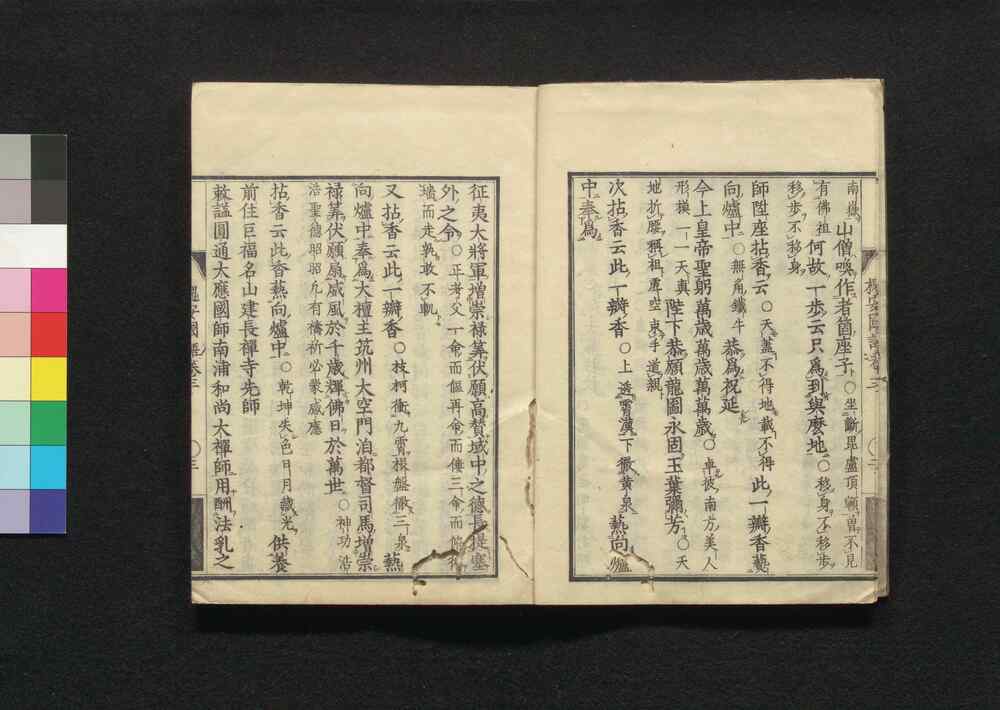 南機 山僧喚作者箇座子 ○坐斷毘盧頂𩕳曽不見
有佛祖 何故一歩云只爲到與麽地 ○移身不移歩
移歩不移身
師陞座拈香云 ○天蓋不得地載不得 此一瓣香爇
向爐中 ○無角鐵牛 恭爲祝延
今上皇帝聖躬萬歳萬歳萬萬歳 ○車彼南方美人
形模一一天真 陛下恭願龍圖永固玉葉彌芳 ○天
地折腰 虚空束手道親
次拈香云此一瓣香 ○上透霄漢下徹黄泉 爇向爐
中奉爲
征夷大將軍増崇禄筭伏願高賛域中之德長提塞
外之令 ○正考父一命而傴再命而僂三命而俯循
墻而走孰敢不軌
又拈香云此一瓣香 ○枝柯衝九霄根盤徹三泉 爇
向爐中奉爲大檀主筑州大空門洎都督司馬増崇
禄筭伏願扇威風於千歳輝佛日於萬世 ○神功浩
浩聖德昭昭凡有禱祈必蒙感應
拈香云此香爇向爐中 ○乾坤失色日月藏光 供養
前住巨福名山建長禪寺先師
敕諡圓通大應國師南浦和尚大禪師用酬法乳之